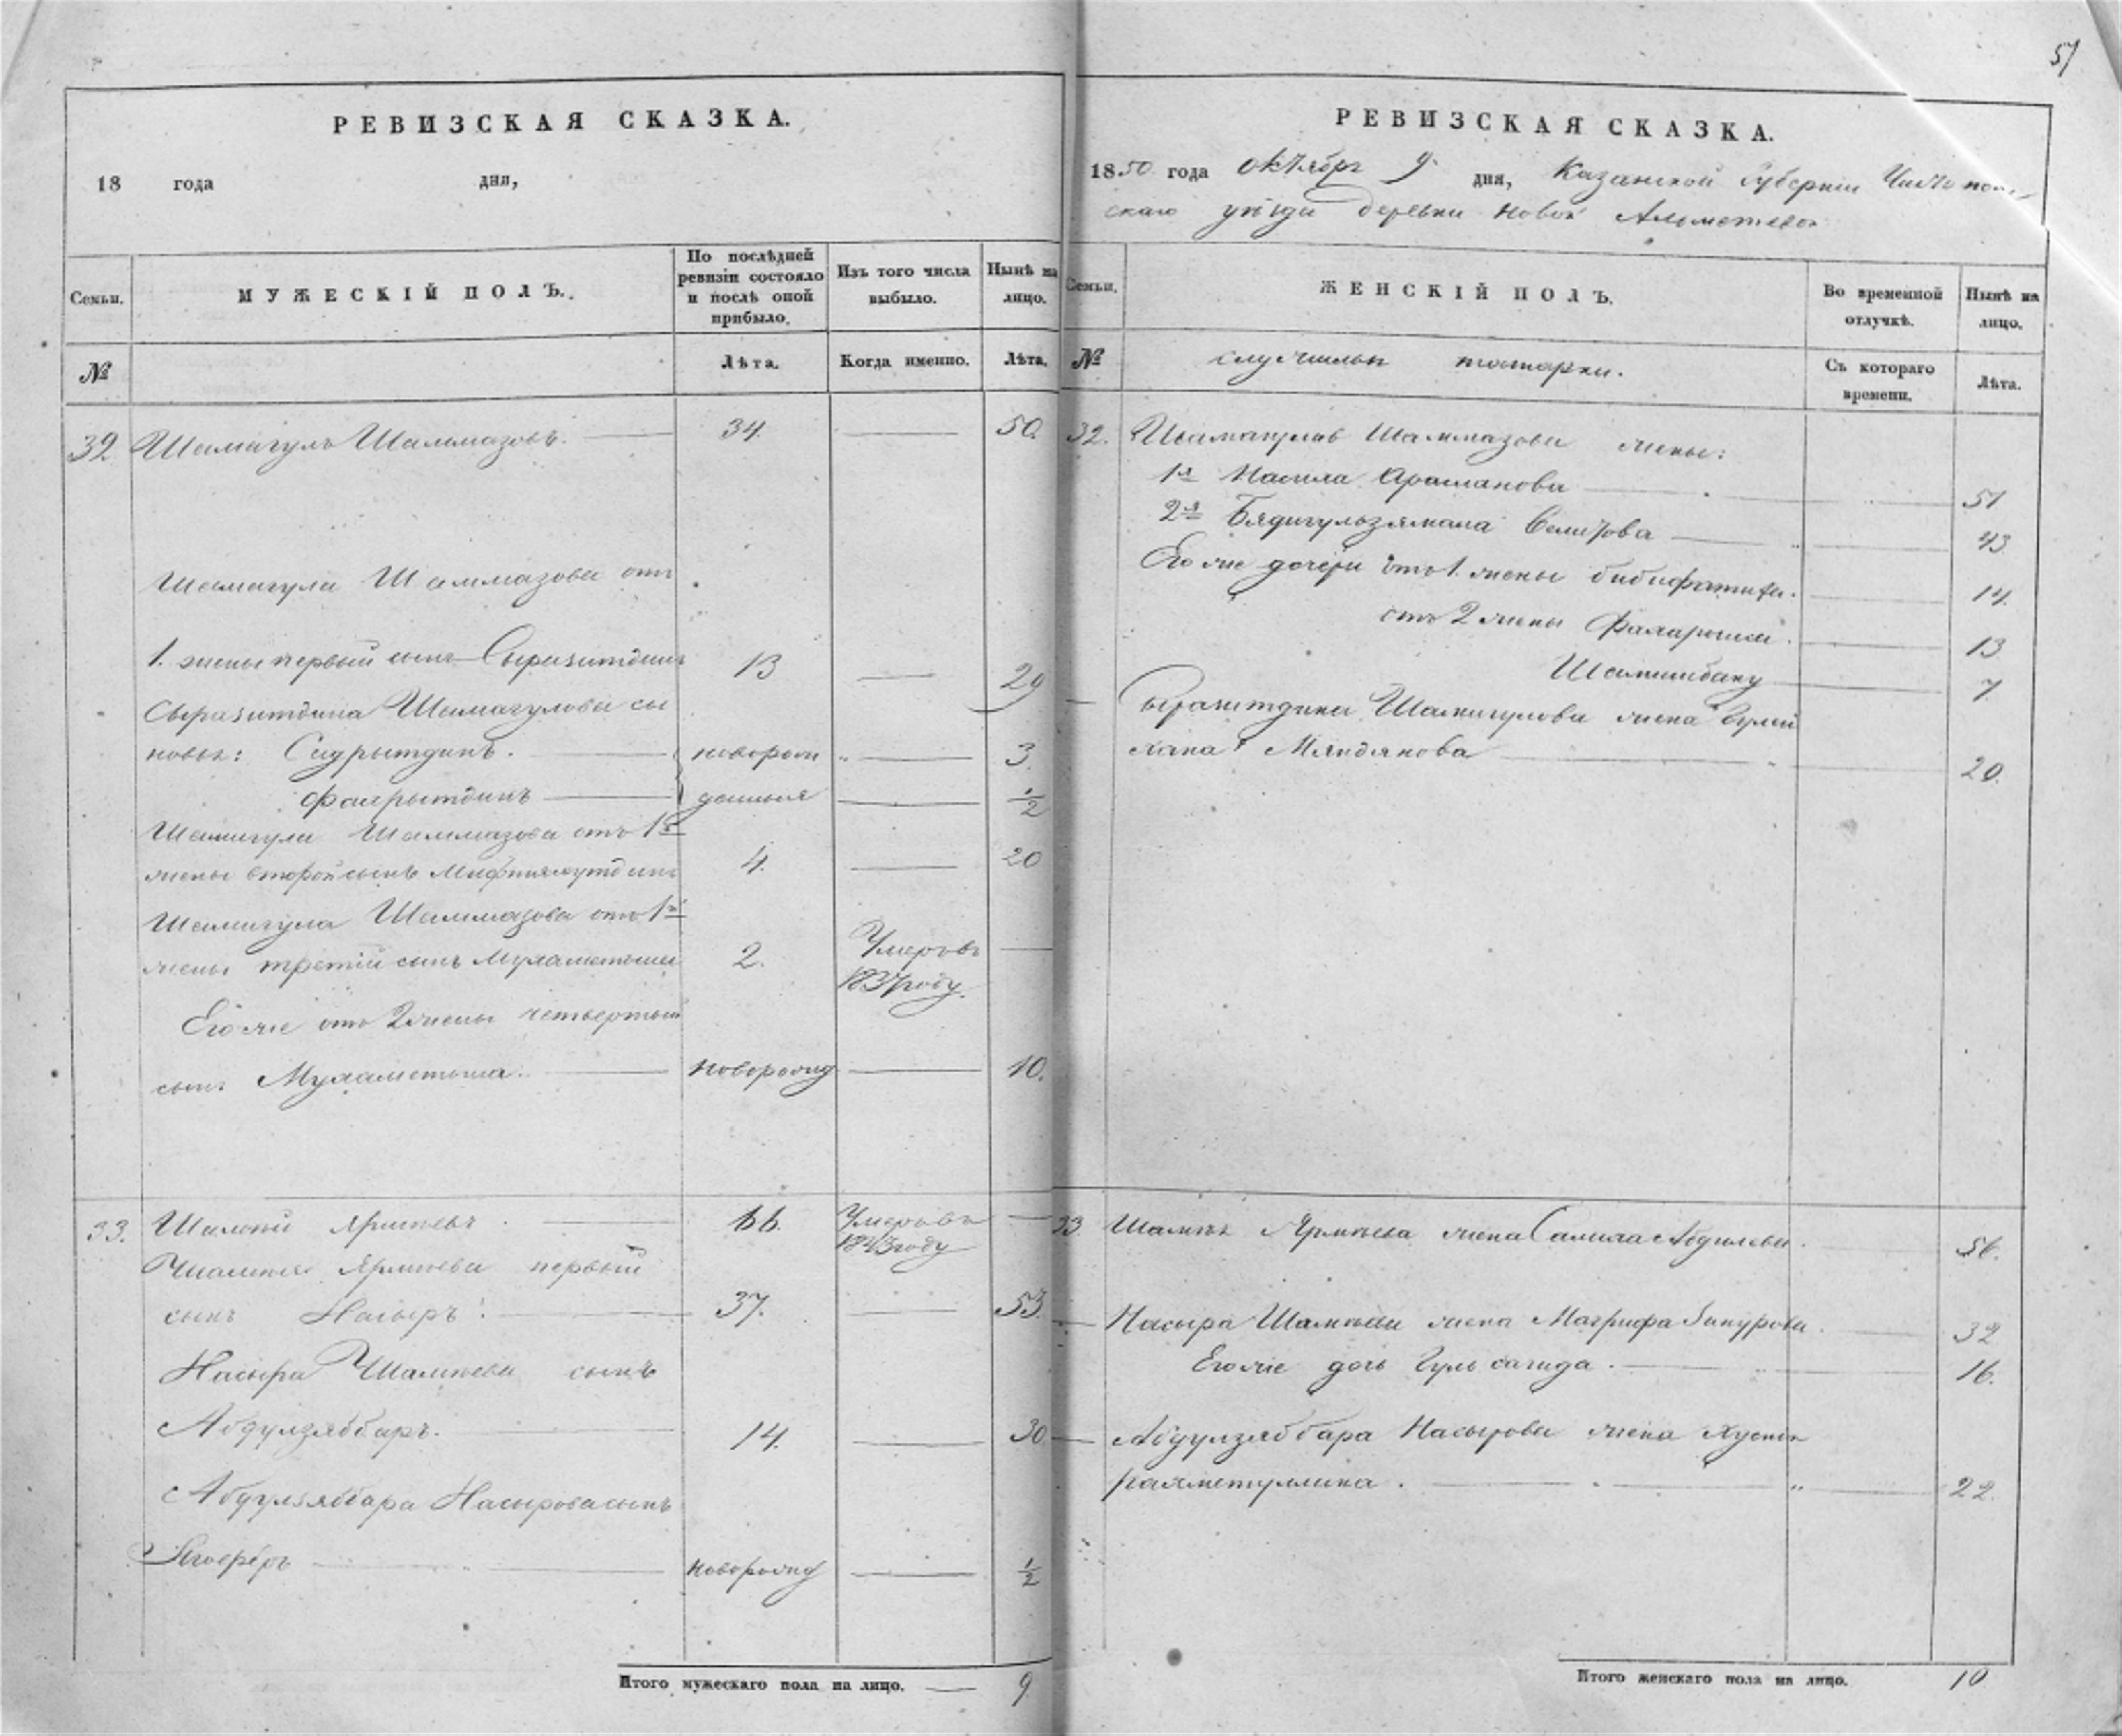 57
РЕВИЗСКАЯ СКАЗКА.
18 года дня,
Семьи.
МУЖЕСКІЙ ПОЛЪ.
По послѣдней ревизіи состояло и послѣ оной прибыло.
Изъ того числа выбыло.
Нынѣ на лицо.
№
Лѣта.
Когда именно.
Лѣта.
32 Шамагулъ Шаммазовъ. 34. 50.
Шамагула Шаммазова отъ
1. жены первый сынъ Сыразитдинъ 13 29
Сыразитдина Шамагулова сы
новья: Садрытдинъ. новорож 3.
Фахрытдинъ денные 1/2
Шамагула Шаммазова отъ 1й
жены второй сынъ 4. 20
Шамагула Шаммазова отъ 1й
жены третій сынъ 2. Умеръ въ
1837 году.
Его же отъ 2 жены четвертый
сынъ Мухаметша. новорожд 10.
33. Ярмѣевъ 66. Умеръ въ
1843 году
Ярмѣева первый
сынъ Насыръ. 37. 53.
Насыра Шамѣева сынъ
Абдулзяббаръ. 14. 30
Абдулзяббара Насырова сынъ
новорожд 1/2
Итого мужескаго пола на лицо. 9
РЕВИЗСКАЯ СКАЗКА.
1850 года октября 9 дня, Казанской Губерніи Чистополь
скаго уѣзда деревни Новой Альметевой
Семьи.
ЖЕНСКІЙ ПОЛЪ.
Во временной отлучкѣ.
Нынѣ на лицо.
№
служилыя татарки.
Съ котораго времени.
Лѣта.
32. Шамагулъ Шаммазова жены:
1я Насила Арасланова 51
2я Бядигульзямала Сеитова 43
Его же дочери отъ 1. жены Бибифатиха. 14.
отъ 2 жены 13
Шамшибану 7.
Сыразитдина Шамагулова жена Гулий
хана Мяндянова 20.
33 Ярмѣева жена Салиха 56.
Насыра Шамѣева жена Магрифа Зипурова 32
Его же дочь Гульсагида. 16.
Абдулзяббара Насырова жена Хусни
Рахметуллина. 22.
Итого женскаго пола на лицо. 10